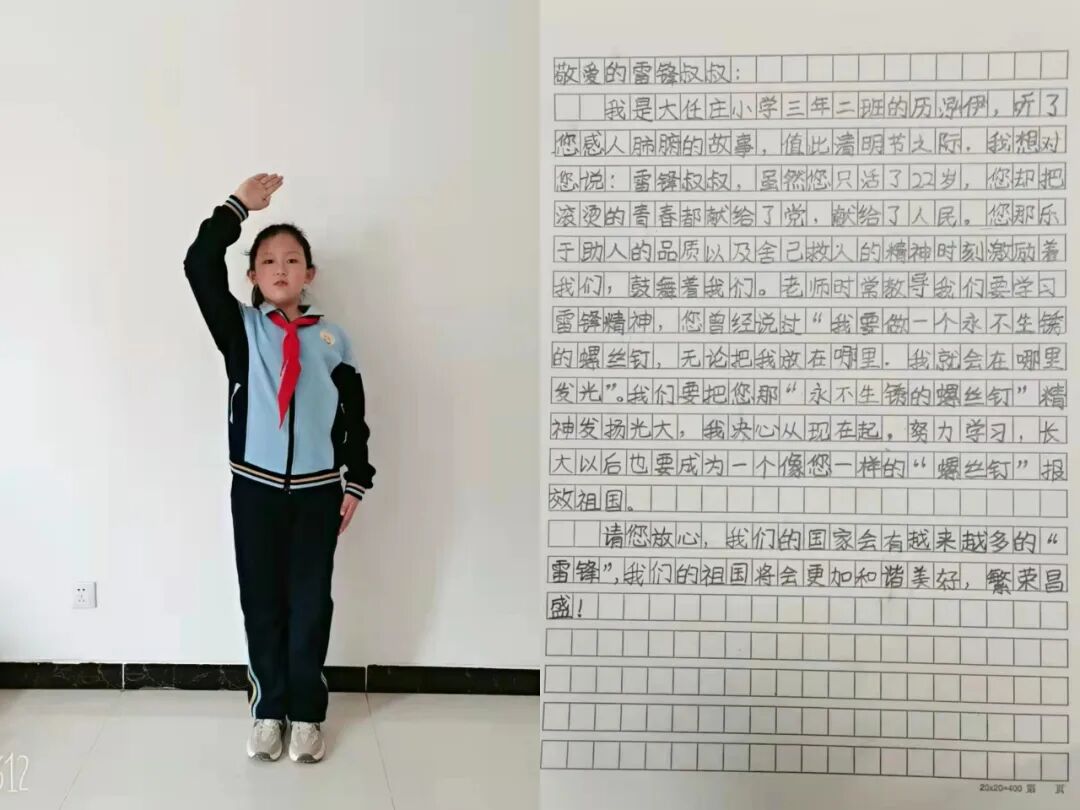 敬爱的雷锋叔叔：
我是大任庄小学三年二班的历泓伊，听了
您感人肺腑的故事，值此清明节之际，我想对
您说：雷锋叔叔，虽然您只活了22岁，您却把
滚烫的青春都献给了党，献给了人民。您那乐
于助人的品质以及舍己救人的精神时刻激励着
我们，鼓舞着我们。老师时常教导我们要学习
雷锋精神，您曾经说过“我要做一个永不生锈
的螺丝钉，无论把我放在哪里．我就会在哪里
发光”。我们要把您那“永不生锈的螺丝钉”精
神发扬光大，我决心从现在起，努力学习，长
大以后也要成为一个像您一样的“螺丝钉”报
效祖国。
请您放心，我们的国家会有越来越多的“
雷锋”，我们的祖国将会更加和谐美好，繁荣昌
盛！
20×20=400 第 页
312